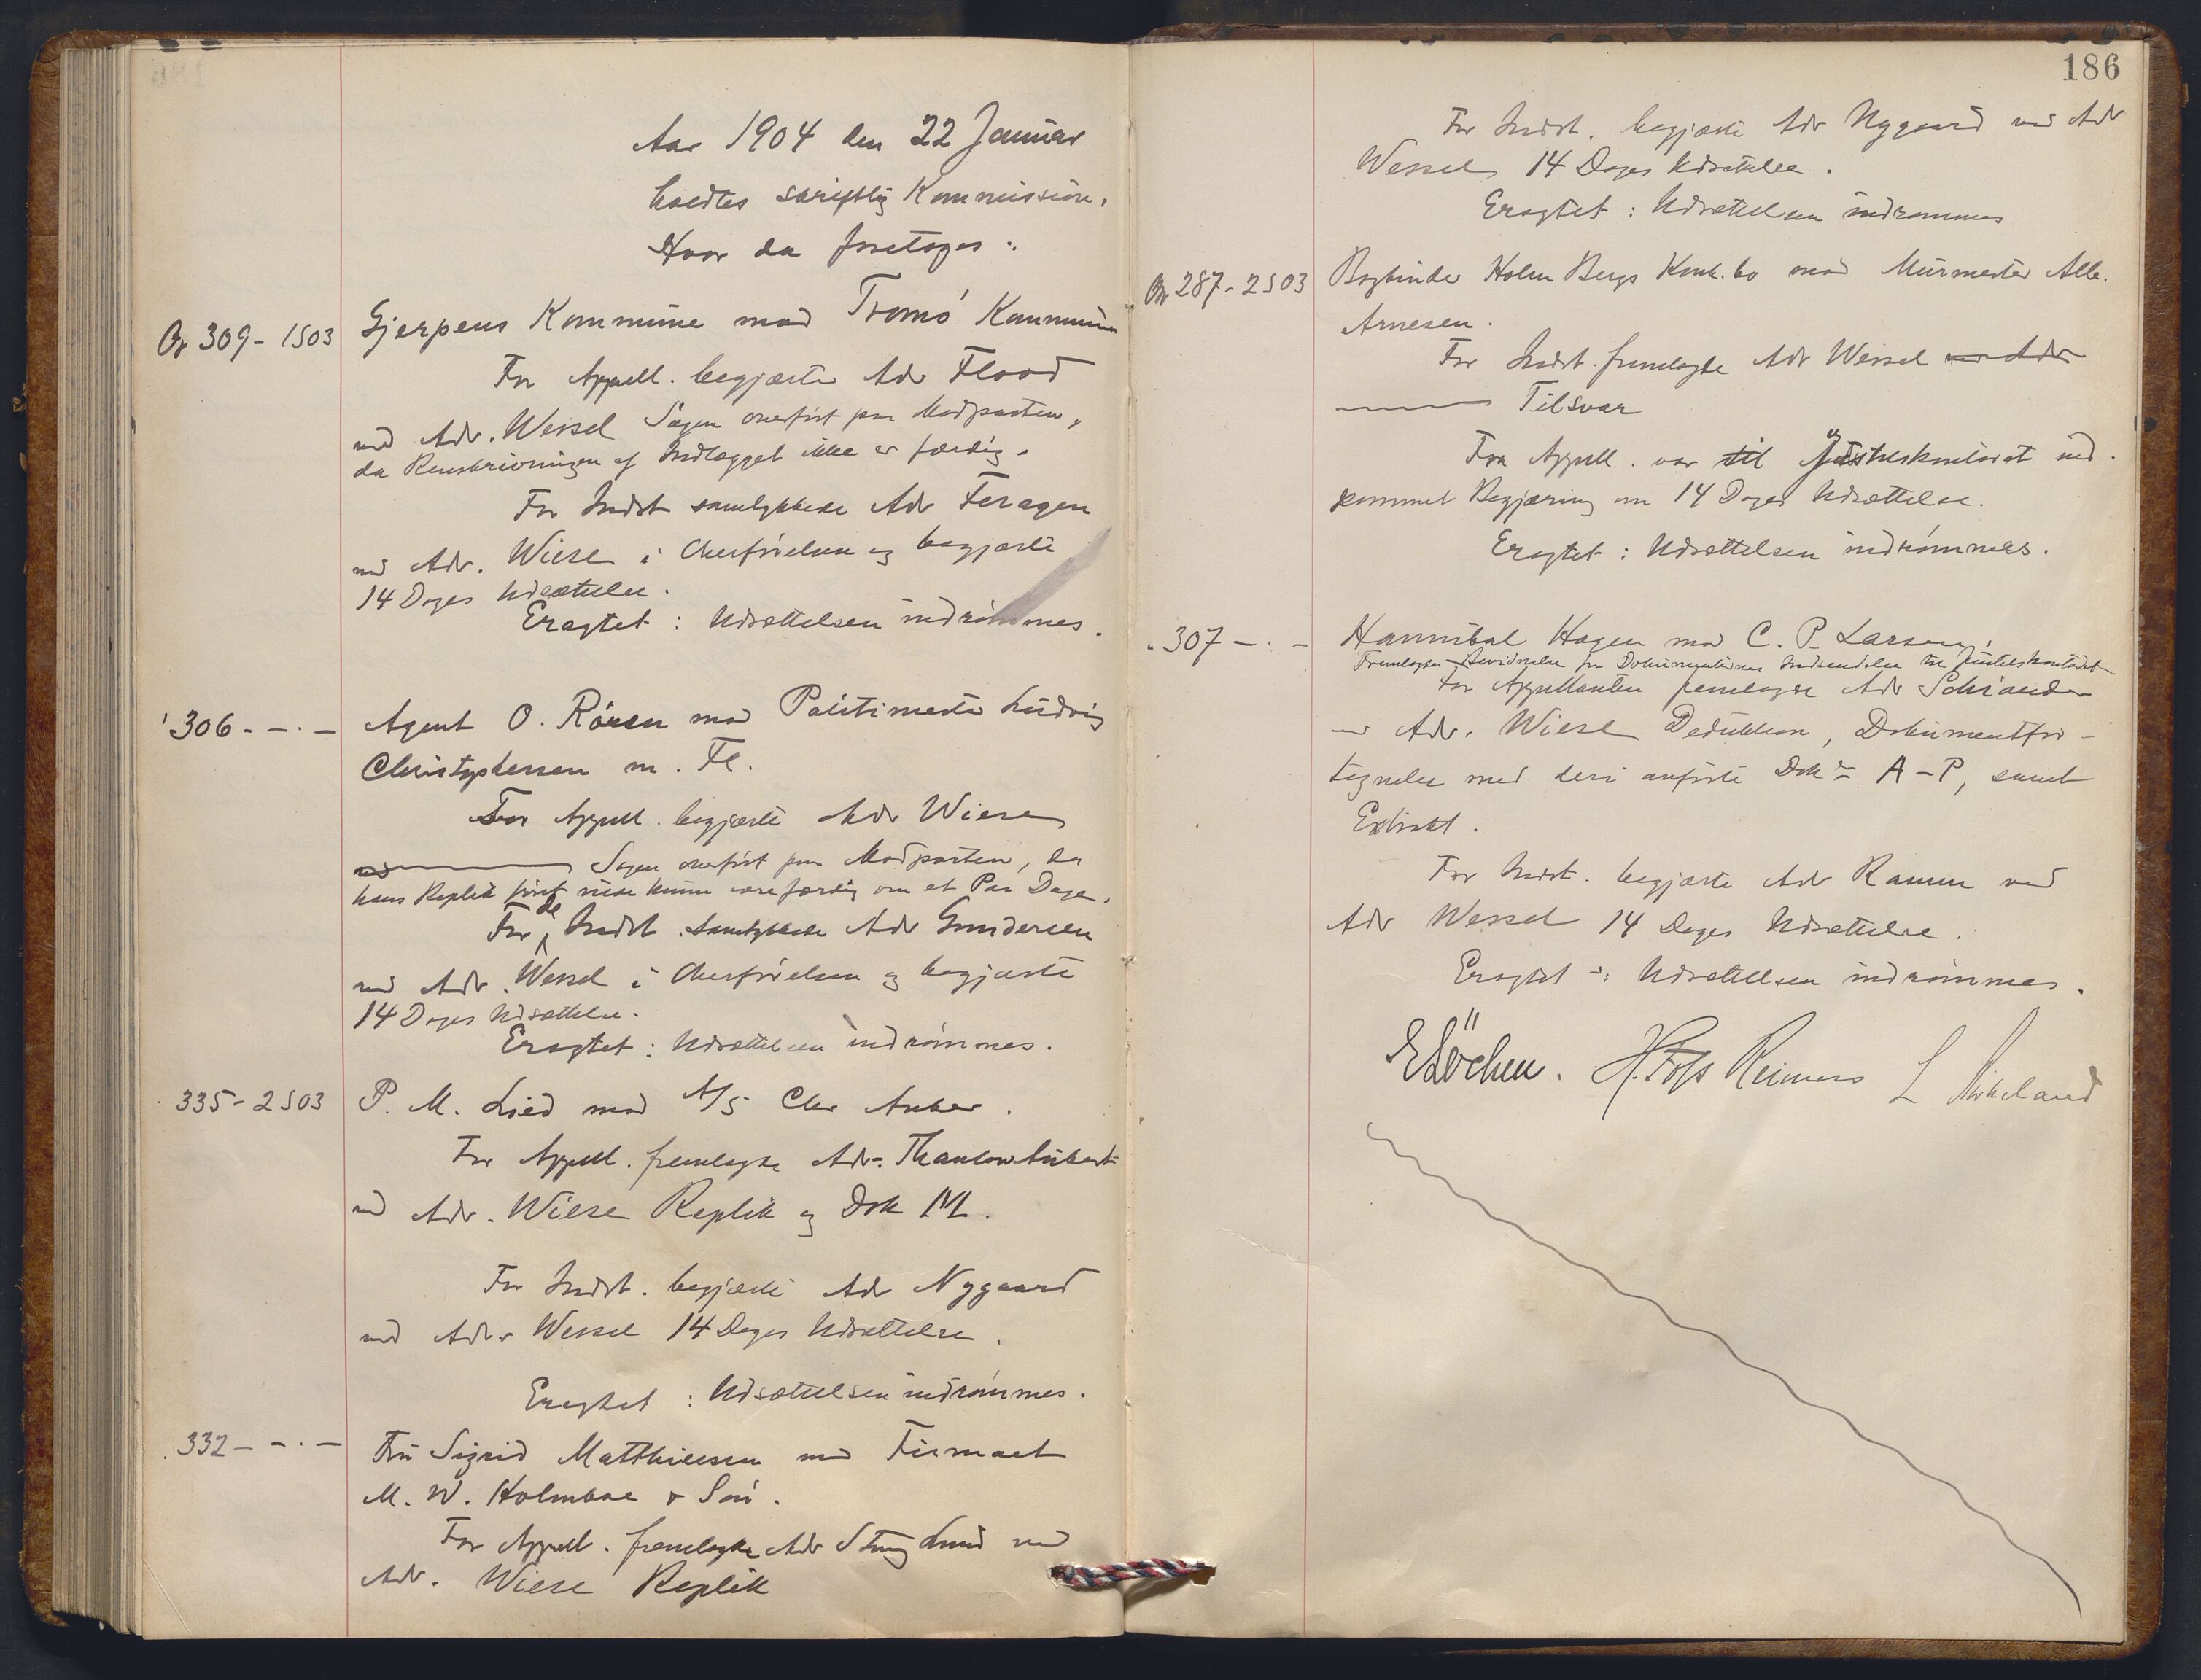 Aar 1904 den 22 Januar
holdtes skriftlig Kommission,
Hvor da foretoges:
Or 309 - 1S03 Gjerpens Kommune mod Tromö Kommune
For Appell. begjærte Adv Flood
ved Adv. Wessel Sagen overført paa Modparten,
da Renskrivningen af Indlægget ikke er færdig.
For Indst samtykkede Adv Feragen
ved Adv. Wiese i Overførelsen og begjærte
14 Dages Udsættelse.
Eragtet: Udsættelsen indrømmes.
306 - - . - Agent O. Rören mod Politimester Ludvig
Christophersen m. Fl.
For Appell. begjærte Adv Wiese
Sagen overført paa Modparten, da
hans Replik først vilde kunne være færdig om et Par Dage.
For de Indst. samtykkede Adv Gundersen
ved Adv. Wessel i Overførelsen og begjærte
14 Dages Udsættelse.
Eragtet: Udsættelsen indrømmes.
335 - 2S03 P. M. Lied mod A/S Chr Anker.
For Appell. fremlagde Adv. Thaulow Aubert
ved Adv. Wiese Replik og Dok M.
For Indst. begjærte Adv Nygaard
ved Adv Wessel 14 Dages Udsættelse.
Eragtet: Udsættelsen indrømmes.
332 - - . - Fru Sigrid Matthiesen mod Firmaet
M. W. Holmboe & Søn.
For Appell. fremlagde Adv Stang Lund ved
Adv. Wiese Replik
186
For Indst. begjærte Adv Nygaard ved Adv
Wessel 14 Dages Udsættelse.
Eragtet: Udsættelsen indrømmes
Or 287 - 2S03 Bogbinder Holm Bergs Konk.bo mod Murmester Alb.
Arnesen.
For Indst. fremlagde Adv Wessel ved Adv
Tilsvar
Fra Appell. var til Justitskontoret ind-
kommet Begjæring om 14 Dages Udsættelse.
Eragtet: Udsættelsen indrømmes.
" 307 - . - Hannibal Hagen mod C. P. Larsen.
Fremlagdes Bevidnelse for Dokumenternes Indsendelse til Justitskontoret
For Appellanten fremlagde Adv Schiander
ved Adv. Wiese Deduktion, Dokumentfor-
tegnelse med deri anførte Dokr A-P, samt
Extrakt.
For Indst. begjærte Adv Ramm ved
Adv Wessel 14 Dages Udsættelse.
Eragtet: Udsættelsen indrømmes.
E Löchen. H. Foss Reimers L Mirkeland